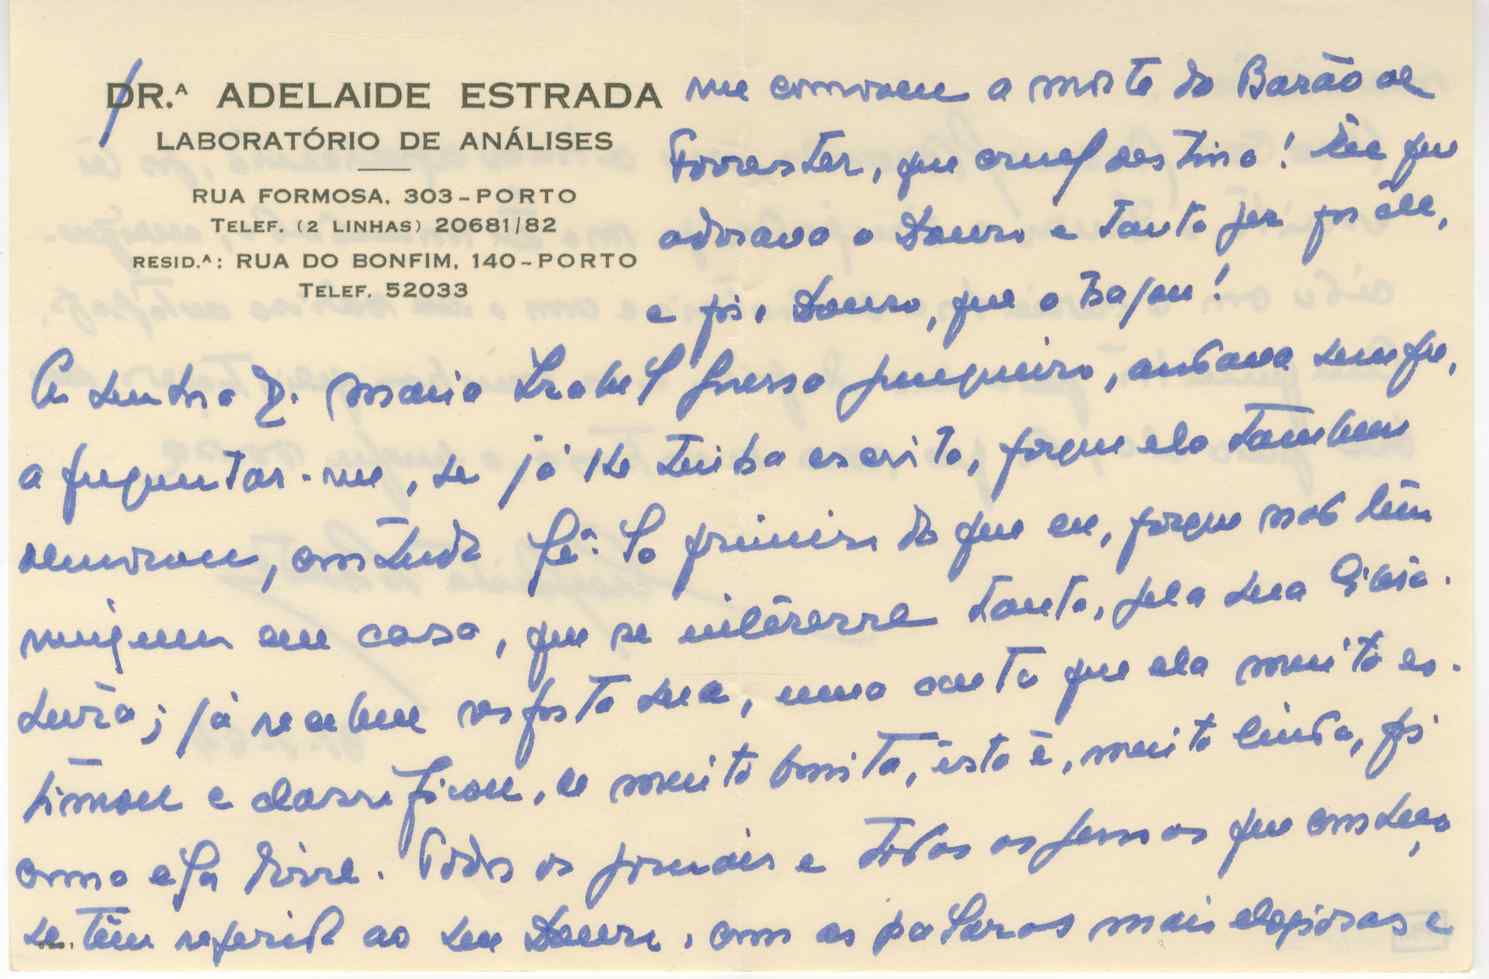 DR.ᴬ ADELAIDE ESTRADA
LABORATÓRIO DE ANÁLISES
RUA FORMOSA, 303-PORTO
TELEF. (2 LINHAS) 20681/82
RESID.ᴬ: RUA DO BONFIM, 140-PORTO
TELEF. 52033
me comoveu a morte do Barão de
Forrester, que cruel destino! Êle que
adorava o Douro e tanto fez por êle,
e foi, Douro, que o tragou!
A senhora D. Maria Izabel Guerra Junqueiro, andava sempre,
a preguntar-me, se já lhe tinha escrito, porque ela tambem
demorou, contudo fê-lo primeiro do que eu, porque não têm
ninguem em casa, que se interêsse tanto, pela sua
já recebeu resposta sua, uma carta que ela muito es-
timou e classificou, de muito bonita, isto é, muito linda, foi
como ela disse. Todos os jornais e todas as pessoas que conheço,
se têm referido ao seu Douro, com as palavras mais elogiosas e